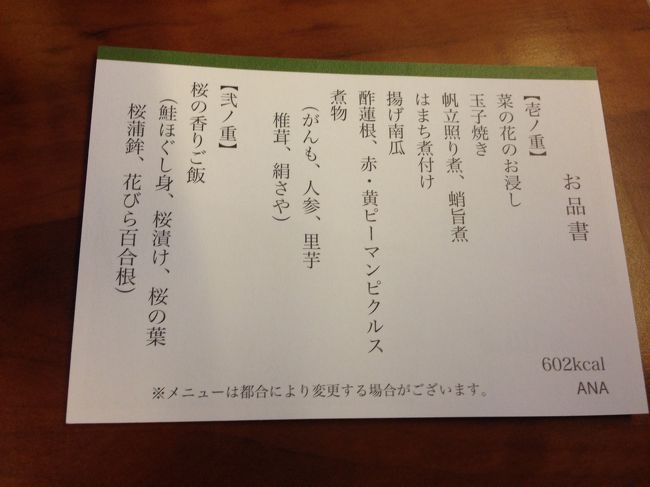 お品書
【壱ノ重】
菜の花のお浸し
玉子焼き
帆立照り煮、蛸旨煮
はまち煮付け
揚げ南瓜
酢蓮根、赤・黄ピーマンピクルス
煮物
（がんも、人参、里芋
椎茸、絹さや）
【弐ノ重】
桜の香りご飯
（鮭ほぐし身、桜漬け、桜の葉
桜蒲鉾、花びら百合根）
602kcal
ANA
※メニューは都合により変更する場合がございます。